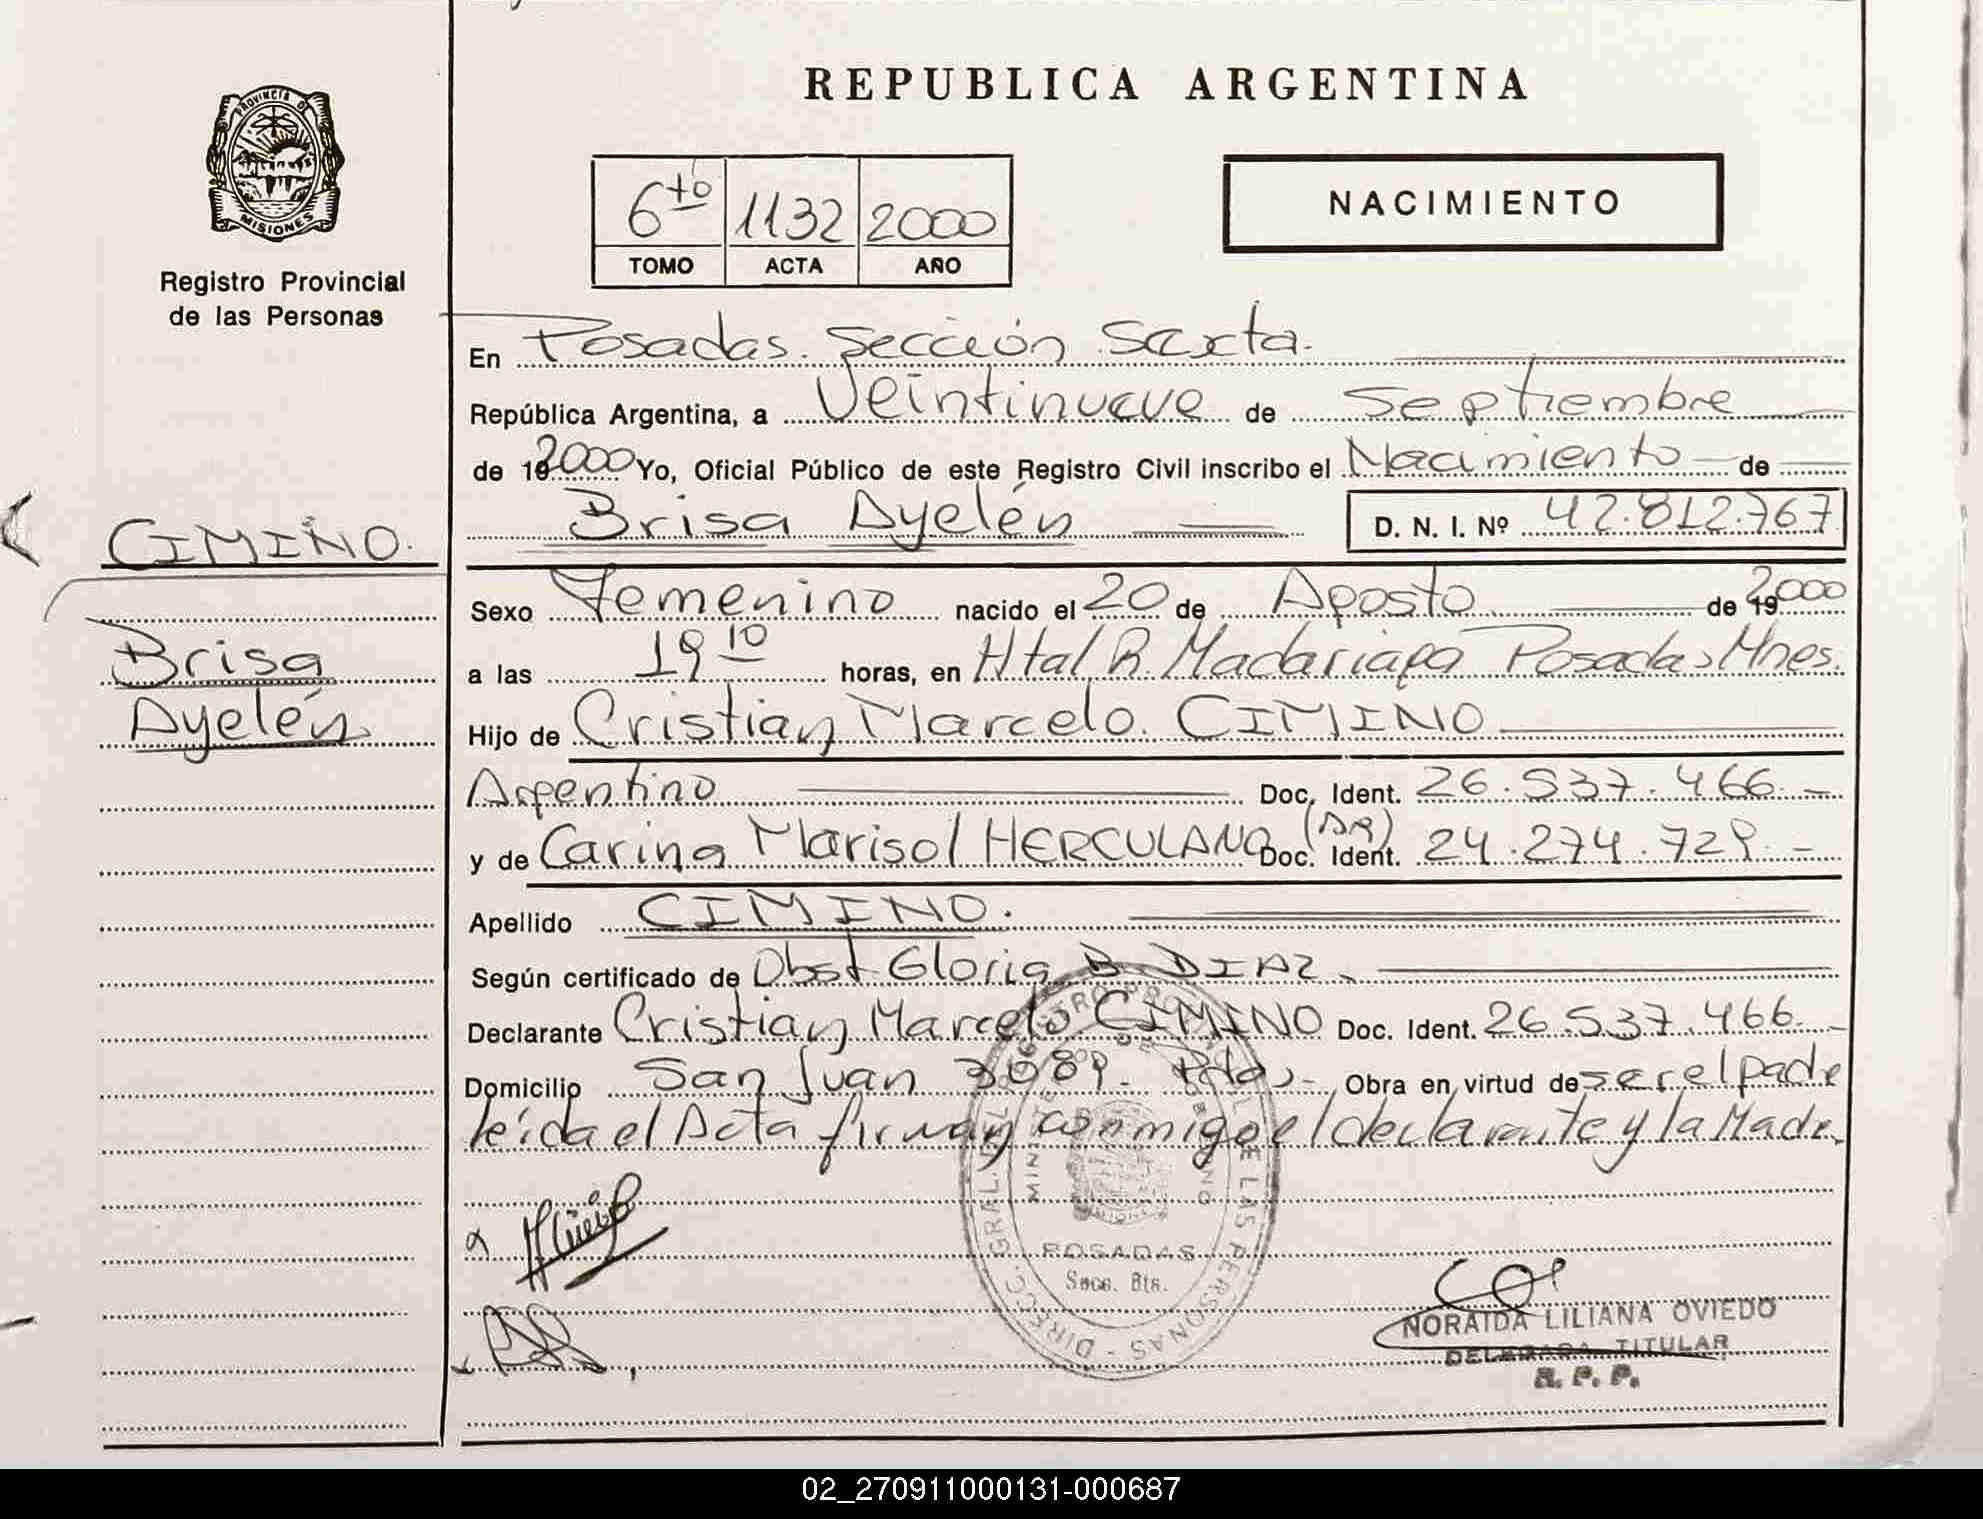 REPUBLICA ARGENTINA
PROVINCIA D
MISIONES
Registro Provincial
de las Personas
6to 1132 2000
TOMO ACTA AÑO
NACIMIENTO
En Posadas. Sección Sexta.
República Argentina, a Veintinueve de Septiembre
de 192000 Yo, Oficial Público de este Registro Civil inscribo el Nacimiento de
Brisa Ayelén
D. N. I. Nº 42.812.767
CIMINO.
Brisa
Ayelén
Sexo Femenino nacido el 20 de Agosto de 192000
a las 19 10 horas, en Htal R. Madariaga Posadas Mnes.
Hijo de Cristian Marcelo. CIMINO
Argentino Doc. Ident. 26.537.466.-
y de Carina Marisol HERCULANO (AR) Doc. Ident. 24.274.729.-
Apellido CIMINO.
Según certificado de Obst Gloria B. DIAZ.
Declarante Cristian Marcelo CIMINO Doc. Ident. 26.537.466.-
Domicilio San Juan 3089. Pdas.- Obra en virtud de ser el padre
leída el Acta firman conmigo el declarante y la Madre.
POSADAS
Secc. 6ta.
NORAIDA LILIANA OVIEDO
DELEGADA TITULAR
R. P. P.
02_270911000131-000687